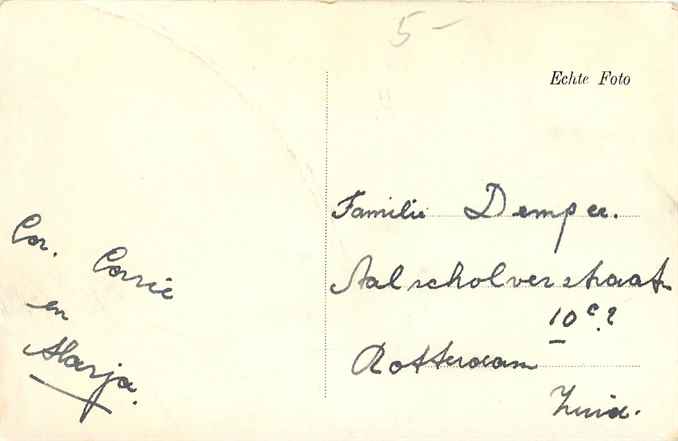 5-
Echte Foto
Cor. Corrie
en
Marja.
Familie Demper.
Aalscholverstraat
10 c.?
Rotterdam
Zuid.